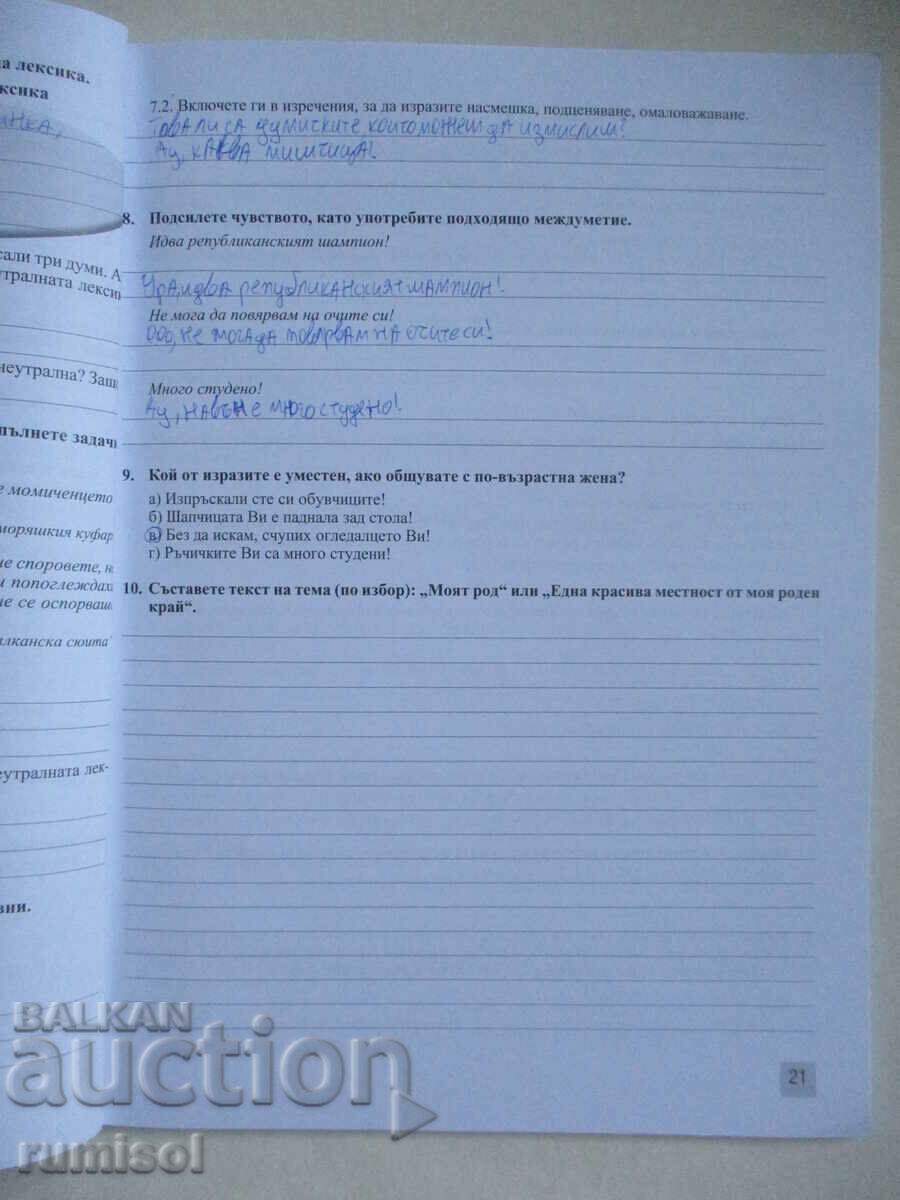 на лексика.
ксика
инка,
сали три думи. А
тралната лекси
неутрална? Защ
пълнете задачи
е момиченцето
моряшкия куфар
не споровете, н
и попоглеждах
не се оспорваш
алканска сюита
еутралната лек-
зни.
7.2. Включете ги в изречения, за да изразите насмешка, подценяване, омаловажаване.
Това ли са думичките които можем да измислим?
Ау, каква мишчица!
8. Подсилете чувството, като употребите подходящо междуметие.
Идва републиканският шампион!
Ура, идва републиканският шампион!
Не мога да повярвам на очите си!
Ооо, не мога да повярвам на очите си!
Много студено!
Ау, навън е много студено!
9. Кой от изразите е уместен, ако общувате с по-възрастна жена?
а) Изпръскали сте си обувчиците!
б) Шапчицата Ви е паднала зад стола!
в) Без да искам, счупих огледалцето Ви!
г) Ръчичките Ви са много студени!
10. Съставете текст на тема (по избор): „Моят род“ или „Една красива местност от моя роден
край“.
21
BALKAN
auction
rumisol